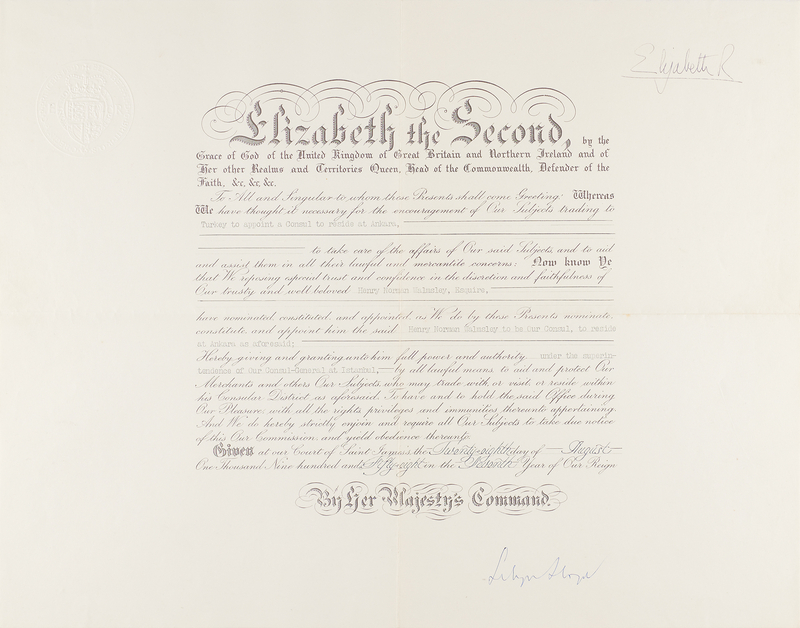 Elizabeth R
Elizabeth the Second, by the
Grace of God of the United Kingdom of Great Britain and Northern Ireland and of
Her other Realms and Territories Queen, Head of the Commonwealth, Defender of the
Faith, &c, &c, &c.
To All and Singular to whom these Presents shall come Greeting: Whereas
We have thought it necessary for the encouragement of Our Subjects trading to
Turkey to appoint a Consul to reside at Ankara,
to take care of the affairs of Our said Subjects, and to aid
and assist them in all their lawful and mercantile concerns: Now know Ye
that We reposing especial trust and confidence in the discretion and faithfulness of
Our trusty and well beloved Henry Norman Walmsley, Esquire,
have nominated, constituted and appointed, as We do by these Presents nominate,
constitute and appoint him the said Henry Norman Walmsley to be Our Consul, to reside
at Ankara as aforesaid;
Hereby giving and granting unto him full power and authority under the superin-
tendence of Our Consul-General at Istanbul, by all lawful means, to aid and protect Our
Merchants and others Our Subjects, who may trade with, or visit, or reside within
his Consular District as aforesaid. To have and to hold the said Office during
Our Pleasure, with all the rights, privileges and immunities thereunto appertaining.
And We do hereby strictly enjoin and require all Our Subjects to take due notice
of this Our Commission, and yield obedience thereunto.
Given at our Court of Saint James's, the Twenty-eighth day of August
One Thousand Nine hundred and Fifty-eight in the Seventh Year of Our Reign
By Her Majesty's Command.
Selwyn Lloyd